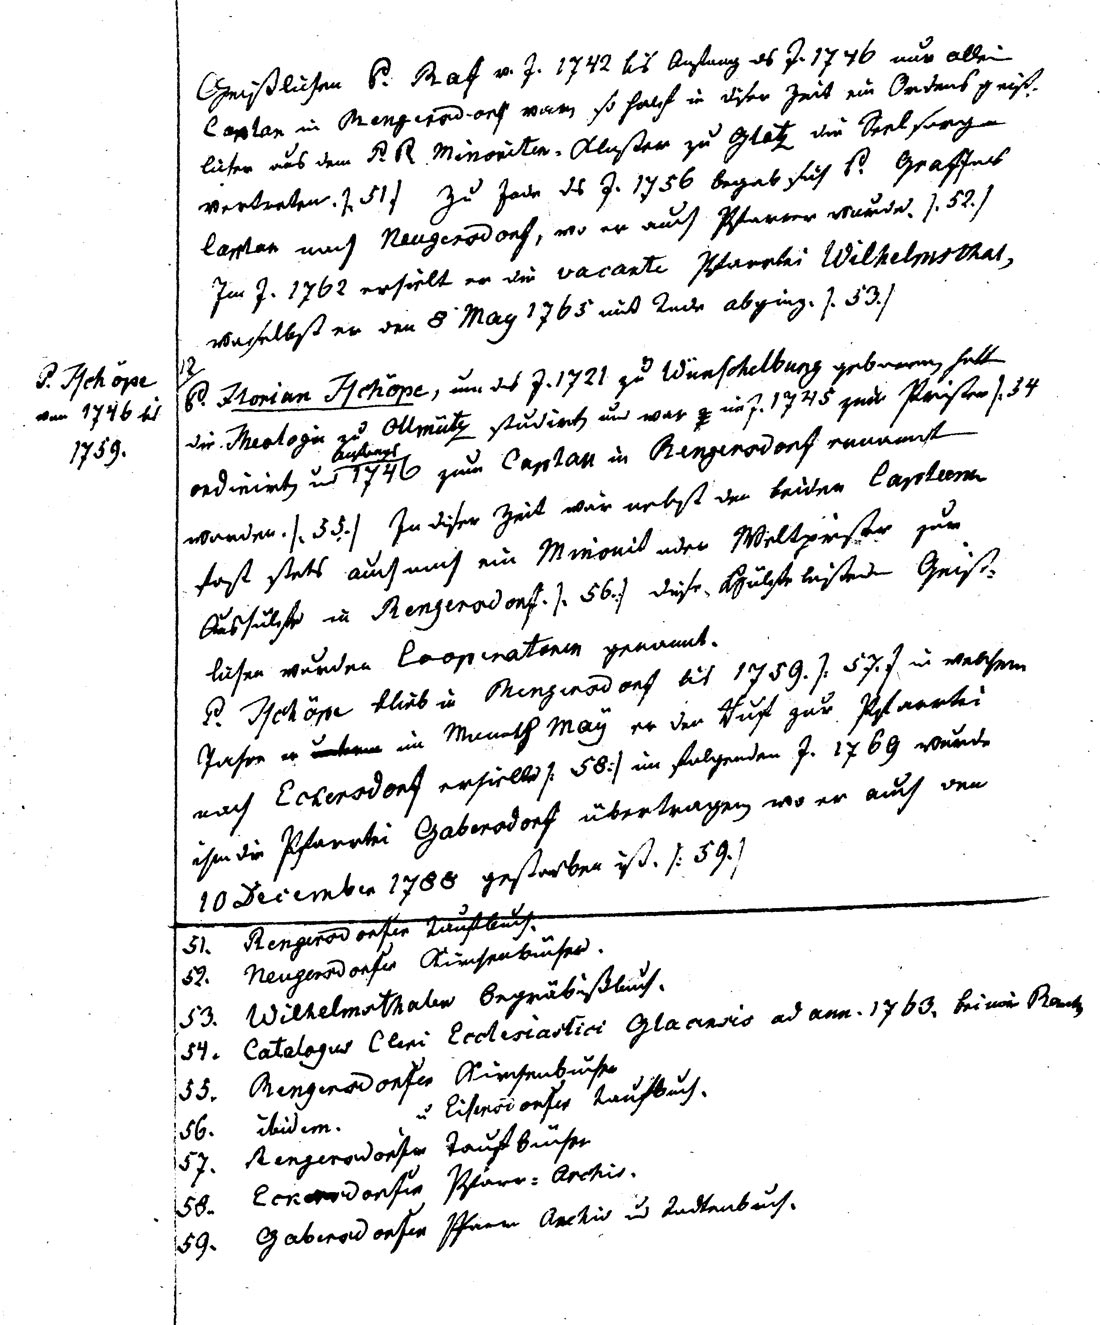 Geistlichen P. Raf v. J. 1742 bis Anfang des J. 1746 nur allein
Caplan in Rengersdorf war, so half in diser Zeit ein Ordens geist-
licher aus dem P. R. Minoriten-Kloster zu Glatz die Seelsorge
vertreten. /: 51 :/ Zu Ende des J. 1756 begab sich P.
Caplan nach Neugersdorf, wo er auch Pfarrer wurde. /: 52. :/
Im J. 1762 erhielt er die vacante Pfarrtei Wilhelmsthal,
woselbst er den 8 May 1765 mit Tode abging. /: 53. :/
P. Tschöpe
von 1746 bis
1759.
12
P. Florian Tschöpe, um das J. 1721 zu Wünschelburg geboren, hatte
die Theologie zu Ollmütz studirt, und war im J. 1745 zum Prister /: 34
ordinirt, und Anfangs 1746 zum Caplan in Rengersdorf ernannt
worden. /: 35. :/ In diser Zeit war nebst den beiden Caplanen
fast stets auch noch ein Minorit oder Weltprister zur
Aushülfe in Rengersdorf. /: 56. :/ Dise Hülfe leistenden Geist-
lichen wurden Cooperatoren genannt.
P. Tschöpe blieb in Rengersdorf bis 1759. /: 57. :/ in welchem
Jahre er im Monath May er den Ruf zur Pfarrtei
nach Eckersdorf erhielt /: 58 :/ im folgenden J. 1769 wurde
ihm die Pfarrtei Gabersdorf übertragen, wo er auch den
10 December 1788 gestorben ist. /: 59. :/
51. Rengersdorfer Taufbuch.
52. Neugersdorfer Kirchenbücher.
53. Wilhelmsthaler Begräbnißbuch.
54. Catalogus Cleri Ecclesiastici Glacensis ad ann. 1763. bei mir
55. Rengersdorfer Kirchenbücher
56. ibidem. u Eisersdorfer Taufbuch.
57. Rengersdorfer Taufbücher
58. Eckersdorfer Pfarr-Archiv.
59. Gabersdorfer Pfarr Archiv u Todtenbuch.